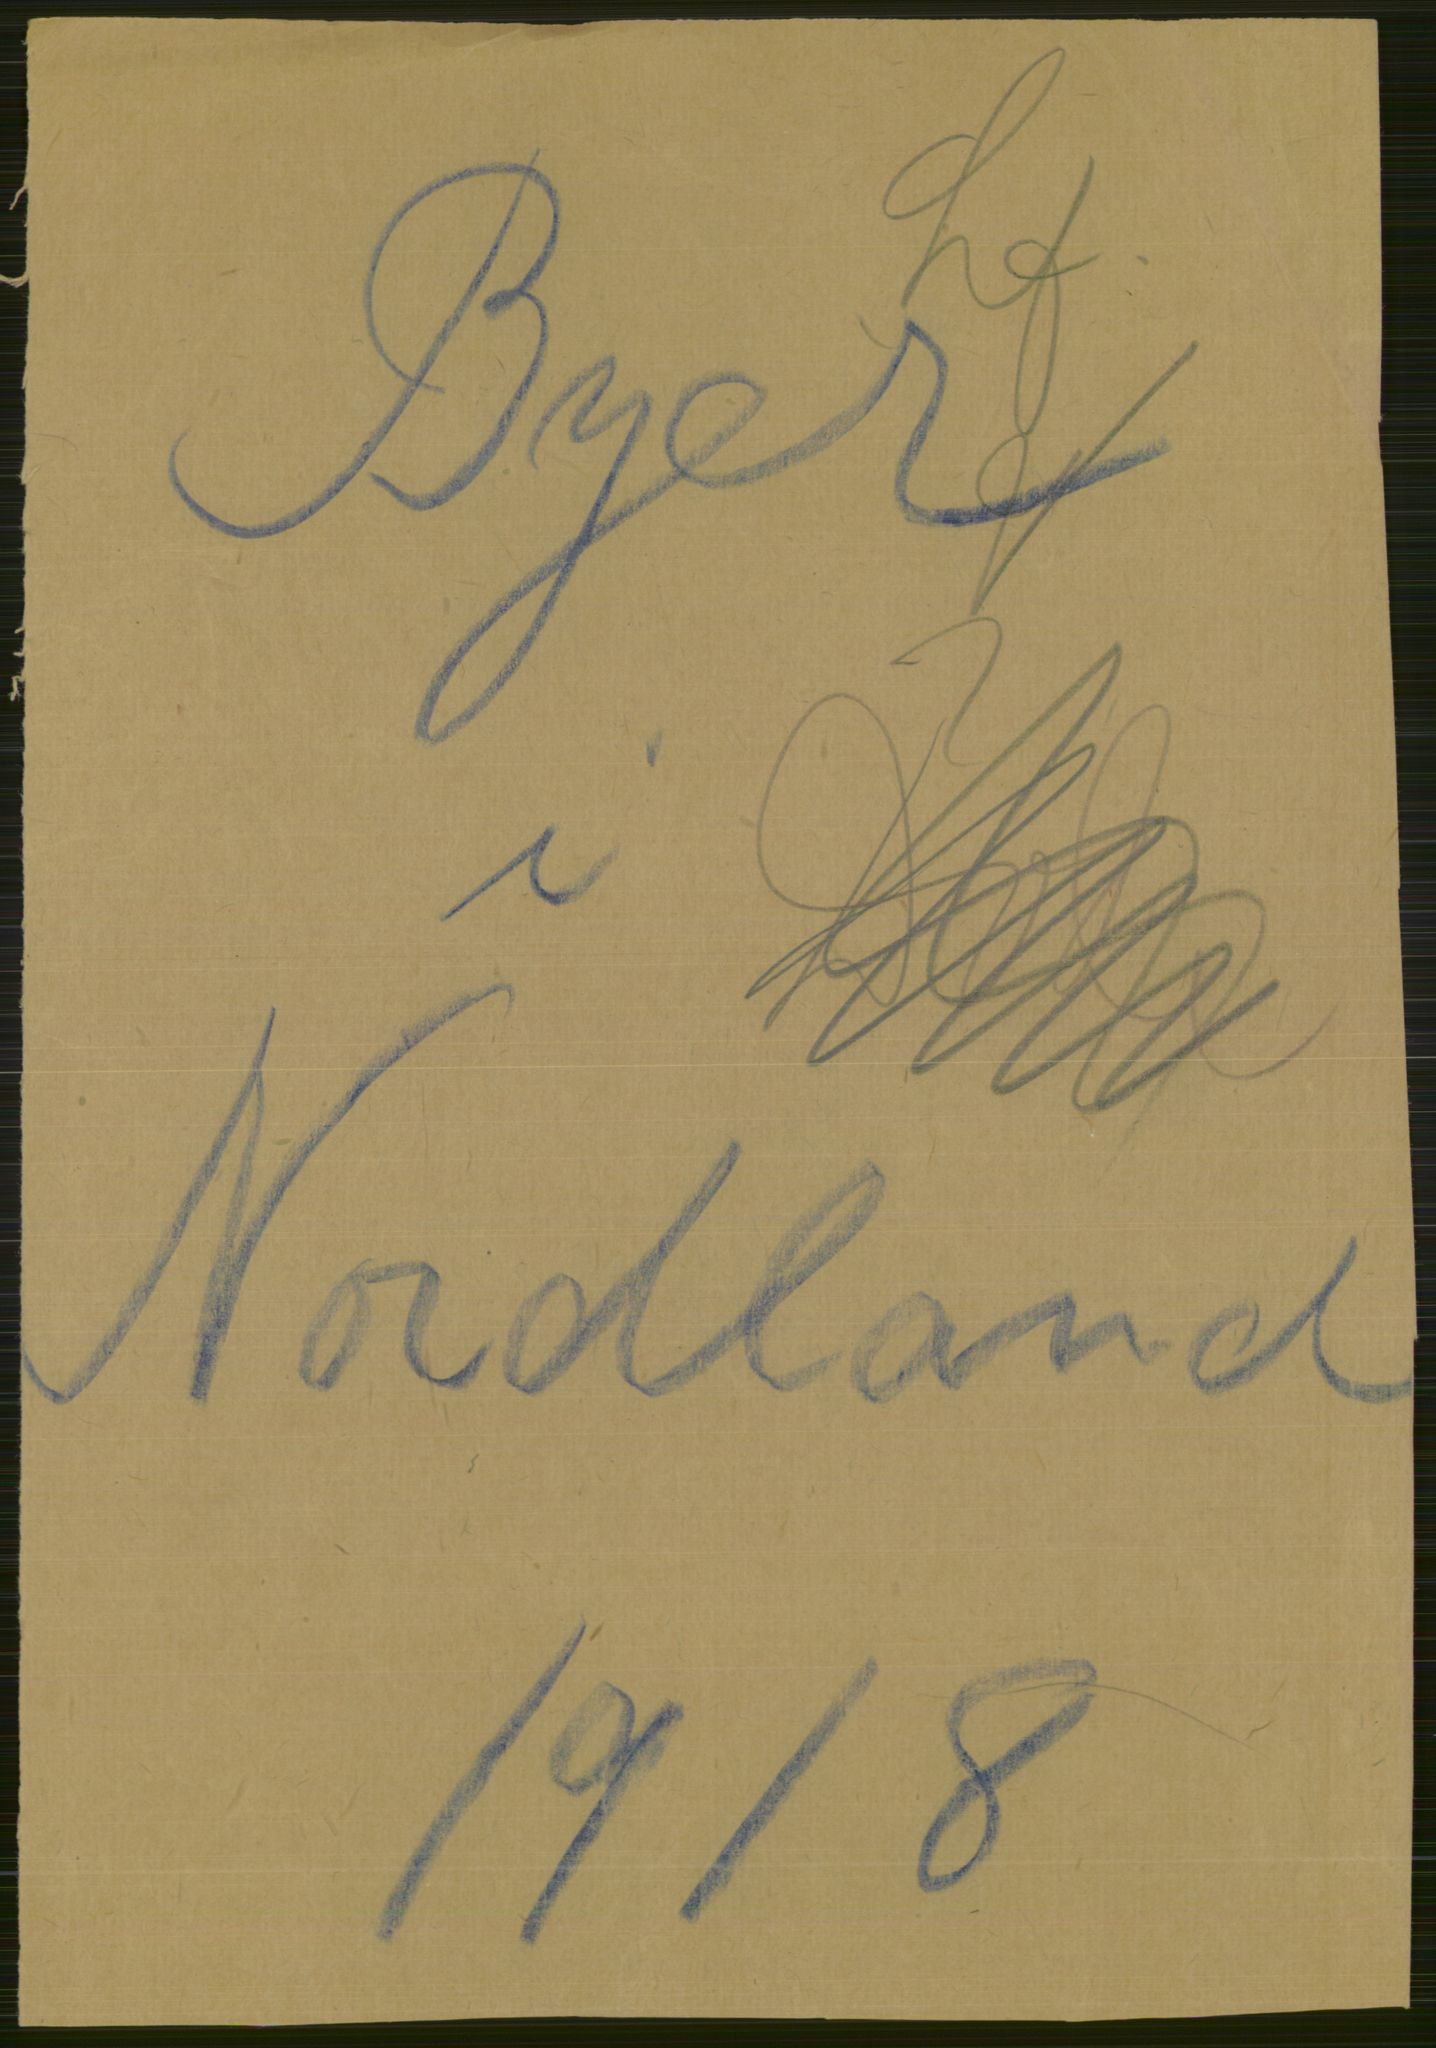 Byer
i
Nordland
1918